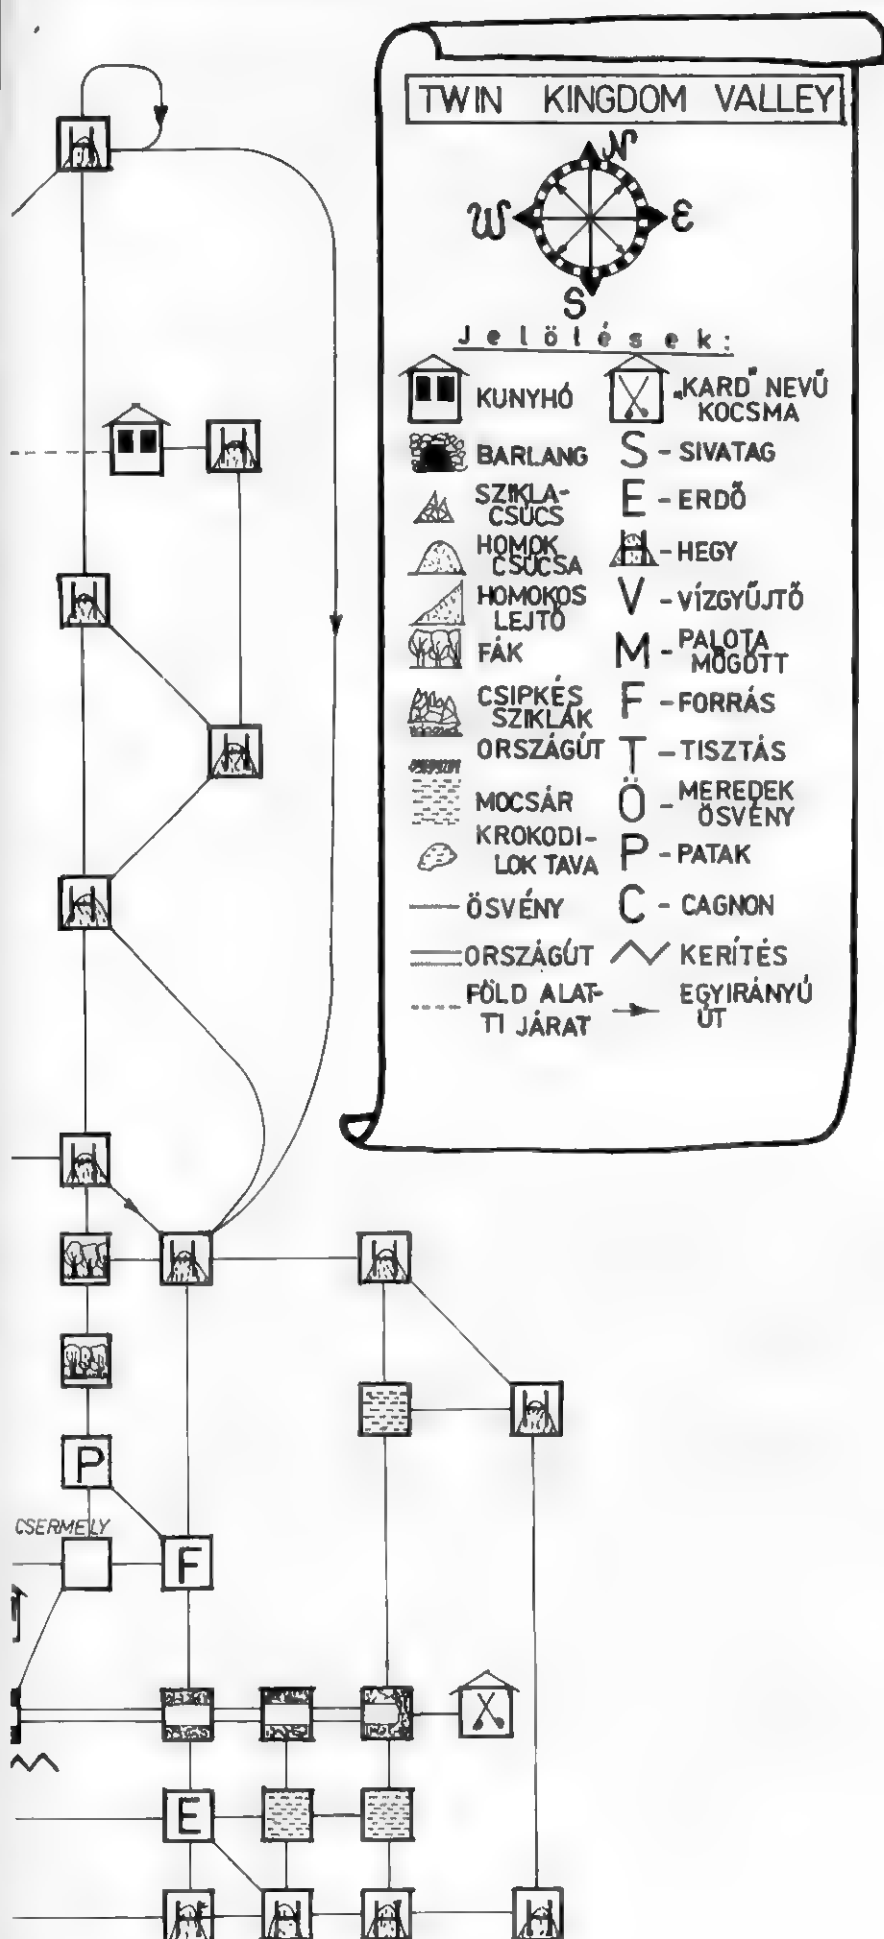 TWIN KINGDOM VALLEY
N
W E
S
Jelölések:
KUNYHÓ
BARLANG
SZIKLA-
CSÚCS
HOMOK
CSÚCSA
HOMOKOS
LEJTŐ
FÁK
CSIPKÉS
SZIKLÁK
ORSZÁGÚT
MOCSÁR
KROKODI-
LOK TAVA
ÖSVÉNY
ORSZÁGÚT
FÖLD ALAT-
TI JÁRAT
„KARD" NEVŰ
KOCSMA
S - SIVATAG
E - ERDŐ
H - HEGY
V - VÍZGYŰJTŐ
M - PALOTA
MÖGÖTT
F - FORRÁS
T - TISZTÁS
Ö - MEREDEK
ÖSVÉNY
P - PATAK
C - CAGNON
KERÍTÉS
EGYIRÁNYÚ
ÚT
H
H
H
H
H
H
H
H
H
P
CSERMELY
F
E
H
H
H
H